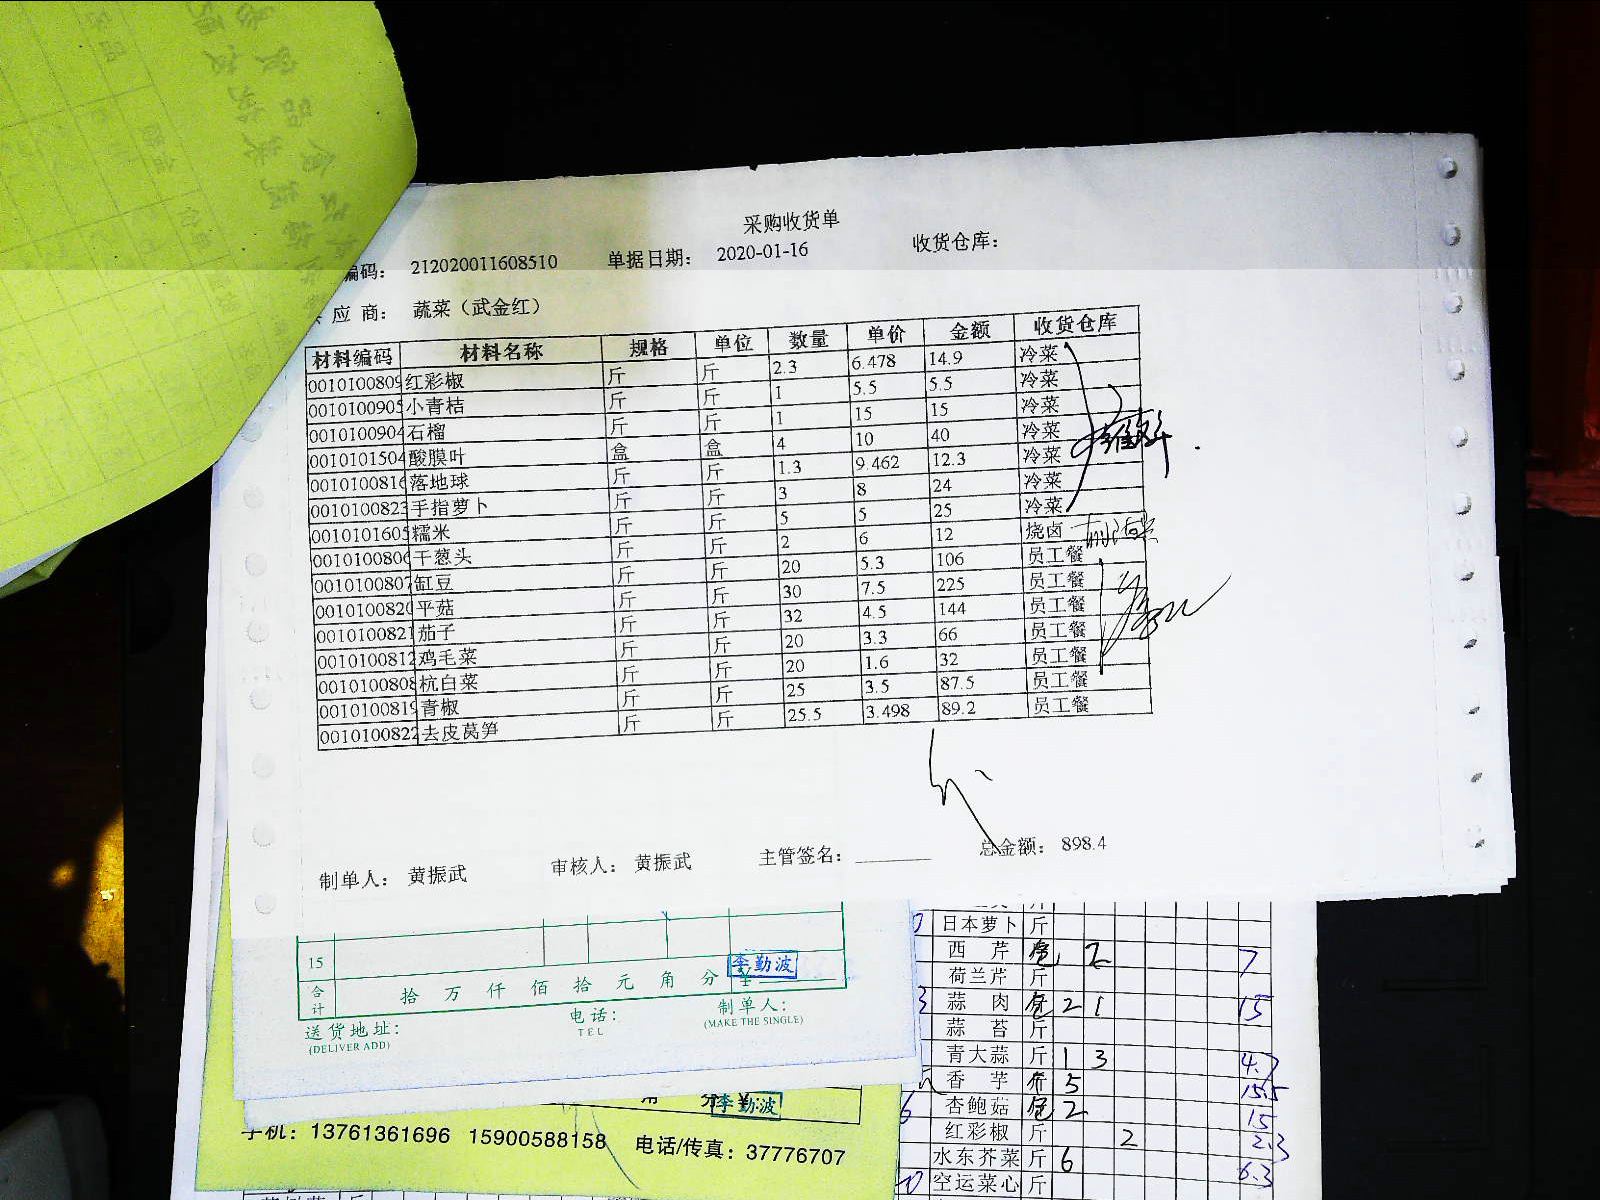 采购收货单
编码： 212020011608510 单据日期： 2020-01-16 收货仓库：
应 商： 蔬菜（武金红）
材料编码 材料名称 规格 单位 数量 单价 金额 收货仓库
0010100809 红彩椒 斤 斤 2.3 6.478 14.9 冷菜
0010100905 小青桔 斤 斤 1 5.5 5.5 冷菜
0010100904 石榴 斤 斤 1 15 15 冷菜
0010101504 酸膜叶 盒 盒 4 10 40 冷菜
0010100816 落地球 斤 斤 1.3 9.462 12.3 冷菜
0010100823 手指萝卜 斤 斤 3 8 24 冷菜
0010101605 糯米 斤 斤 5 5 25 冷菜
0010100806 干葱头 斤 斤 2 6 12 烧卤
0010100807 缸豆 斤 斤 20 5.3 106 员工餐
0010100820 平菇 斤 斤 30 7.5 225 员工餐
0010100821 茄子 斤 斤 32 4.5 144 员工餐
0010100812 鸡毛菜 斤 斤 20 3.3 66 员工餐
0010100808 杭白菜 斤 斤 20 1.6 32 员工餐
0010100819 青椒 斤 斤 25 3.5 87.5 员工餐
0010100822 去皮莴笋 斤 斤 25.5 3.498 89.2 员工餐
制单人： 黄振武 审核人： 黄振武 主管签名： 总金额： 898.4
15
合计 拾 万 仟 佰 拾 元 角 分 ¥
李勤波
送货地址： 电话： 制单人：
(DELIVER ADD) TEL (MAKE THE SINGLE)
角 分 ¥:
李勤波
手机：13761361696 15900588158 电话/传真：37776707
日本萝卜 斤
西 芹 2 7
荷兰芹 斤
蒜 肉 2 1 15
蒜 苔 斤
青大蒜 斤 1 3 4.7
香 芋 斤 5 15.5
杏鲍菇 2 15
红彩椒 斤 2 2.3
水东芥菜 斤 6 6.3
空运菜心 斤